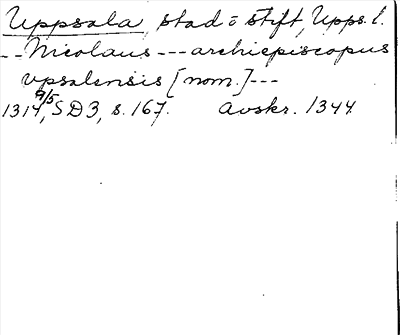 Uppsala, stad o stift, Upps. l.
-- Nicolaus --- archiepiscopus
vpsalensis [nom.] ---
1314 9/5, SD3, s. 167. Avskr. 1344